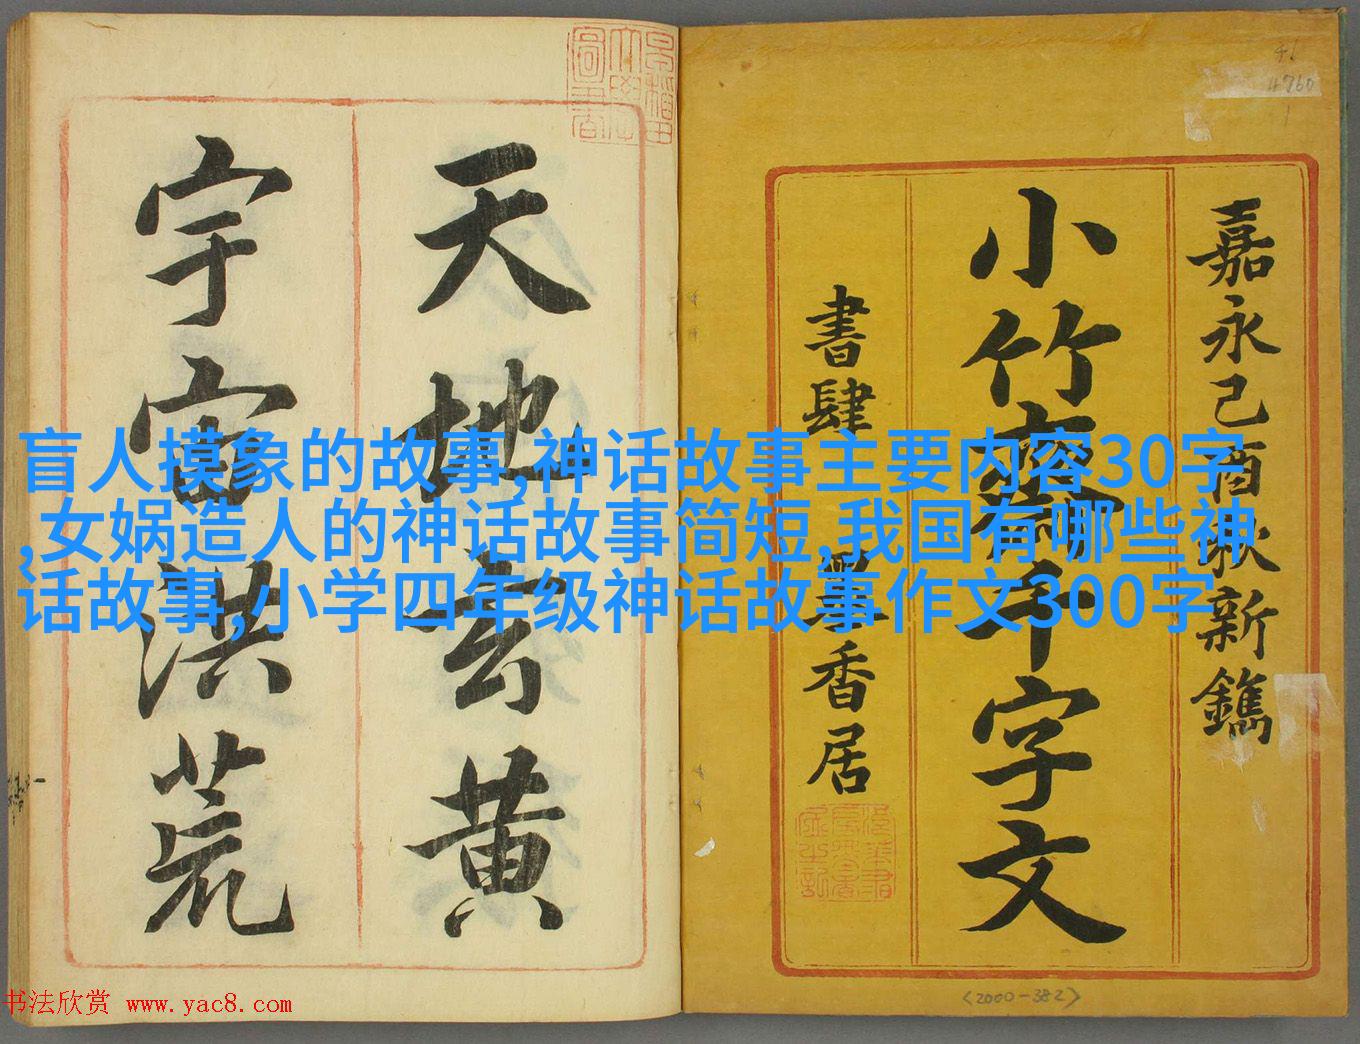 嘉永己酉秋新鐫
小竹齋千字文
書肆 墨香居
天地玄黃
宇宙洪荒
盲人摸象的故事,神话故事主要内容30字
,女娲造人的神话故事简短,我国有哪些神
话故事,小学四年级神话故事作文300字
书法欣赏 www.yac8.com
46
4760
<2000-382>